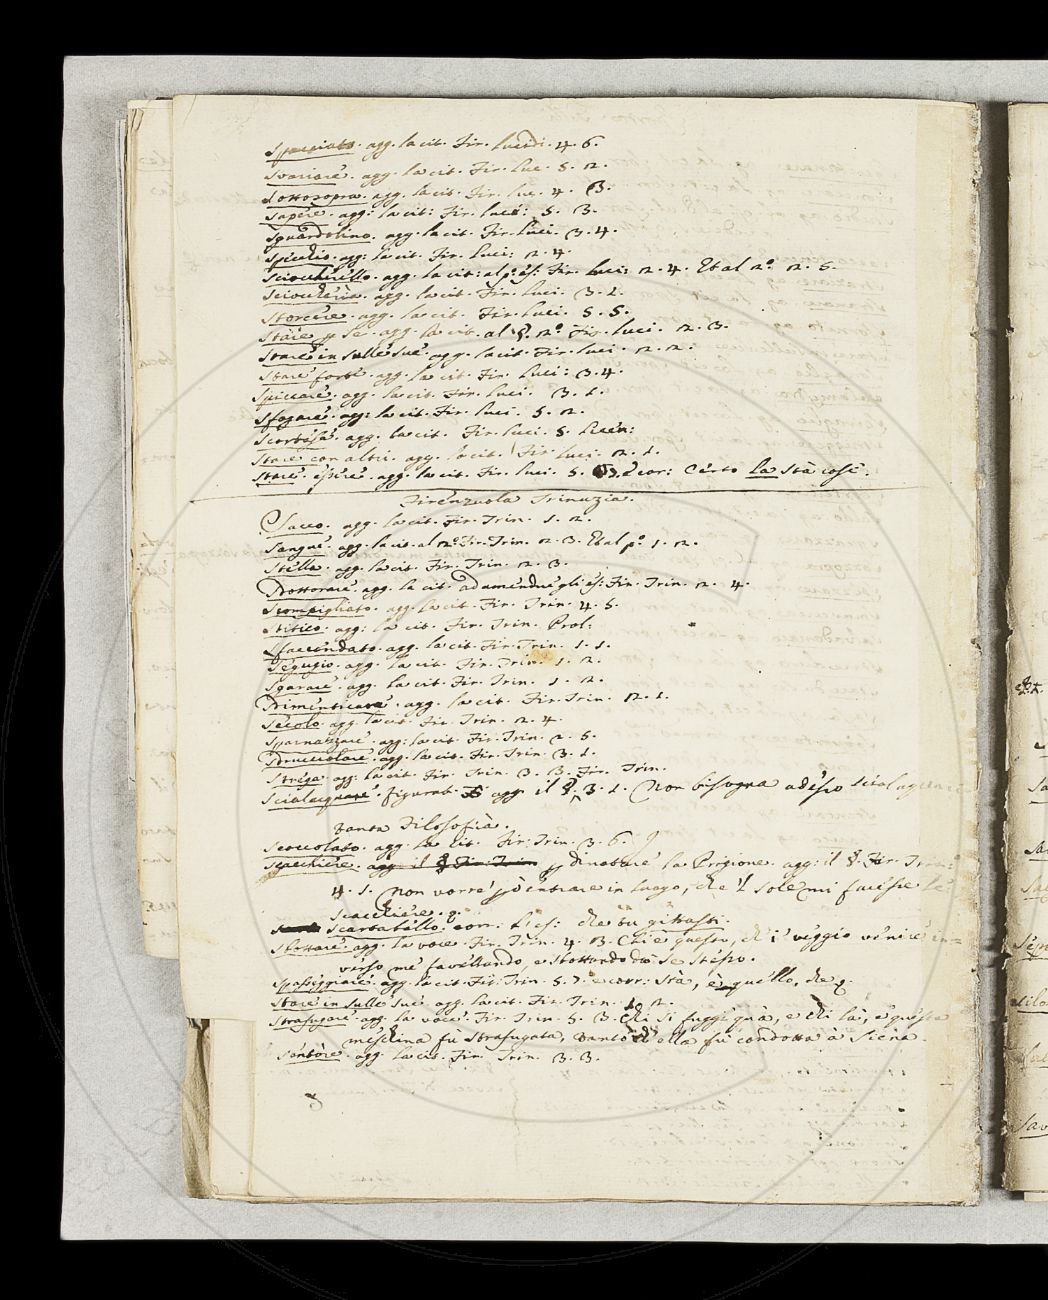 Spacciato. agg. la cit. Fir. Lucidi. 4. 6.
Svariare. agg. la cit. Fir. Luc. 5. 2.
Sottosopra. agg. la cit. Fir. Luc. 4. 3.
Sapere. agg: la cit: Fir. Luci: 5. 3.
Sguardolino. agg. la cit. Fir. Luci. 3. 4.
Specchio. agg: la cit. Fir. Luci: 2. 4.
Sciocherello. agg. la cit: al po. es: Fir. Luci: 2. 4. Et al 2o. 2. 5.
Sciocheria. agg. la cit. Fir. Luci. 3. 1.
Storcere. agg. la cit. Fir. Luci. 5. 5.
Stare p se. agg. la cit. al §. 2o. Fir. Luci. 2. 3.
Stare in sulle sue. agg. la cit. Fir. Luci. 2. 2.
Stare forte. agg. la cit. Fir. Luci: 3. 4.
Spiccare. agg. la cit. Fir. Luci. 3. 1.
Sfogare. agg: la cit. Fir. Luci. 5. 2.
Scortese. agg. la cit. Fir. Luci. 5. Licen:
Stare con altri. agg. la cit. Fir. Luci. 2. 1.
Stare. essere. agg. la cit. Fir. Luci. 5. 3. e cor: Certo la Stà così.
Firenzuola Trinuzia.
Sacco. agg. la cit. Fir. Trin. 1. 2.
Sangue. agg. la cit. al 2o. Fir. Trin. 2. 3. Et al po. 1. 2.
Stella. agg. la cit. Fir. Trin. 2. 3.
Dottorare. agg. la cit. ad amendue gli es: Fir. Trin. 2. 4.
Scompigliato. agg. la cit. Fir. Trin. 4. 5.
Stitico. agg: la cit. Fir. Trin. Prol:
Sfaccendato. agg. la cit. Fir. Trin. 1. 1.
Segugio. agg. la cit. Fir. Trin. 1. 2.
Sgarare. agg. la cit. Fir. Trin. 1. 2.
Dimenticare. agg. la cit. Fir. Trin. 2. 1.
Secolo. agg. la cit. Fir. Trin. 2. 4.
Sparnazzare. agg: la cit. Fir. Trin. 2. 5.
Sdrucciolare. agg. la cit. Fir. Trin. 3. 1.
Strega. agg: la cit. Fir. Trin. 3. 3. Fir. Trin.
Scialacquare. figurat. agg. il §. 3. 1. Non bisogna adesso scialaquare
tanta Filosofia.
Scoccolato. agg. la cit. Fir. Trin. 3. 6.
Scacchiere. agg. il § Fir. Trin p dinotare la Prigione. agg: il §. Fir. Trin:
4. 1. Non vorre' pò entrare in luogo, che 'l sole mi facesse lo
scacchiere. q.
Scartabello. corr. l'es: che tu gittasti.
Stottare. agg. la voce. Fir. Trin. 4. 3. Chi è questo, ch' i' veggio venire in=
verso me favellando, e stottando da se stesso.
Passeggiare. agg. la cit. Fir. Trin. 5. 7. e corr: Stà, è quello, che q.
Stare in sulle sue. agg. la cit. Fir. Trin. 1. 2.
Strafugare. agg. la voce. Fir. Trin. 5. 3. Chi si fuggì quà, e chi là, e questa
meschina fù strafugata, tanto ch' ella fù condotta à Siena.
Sentore. agg. la cit. Fir. Trin. 3. 3.